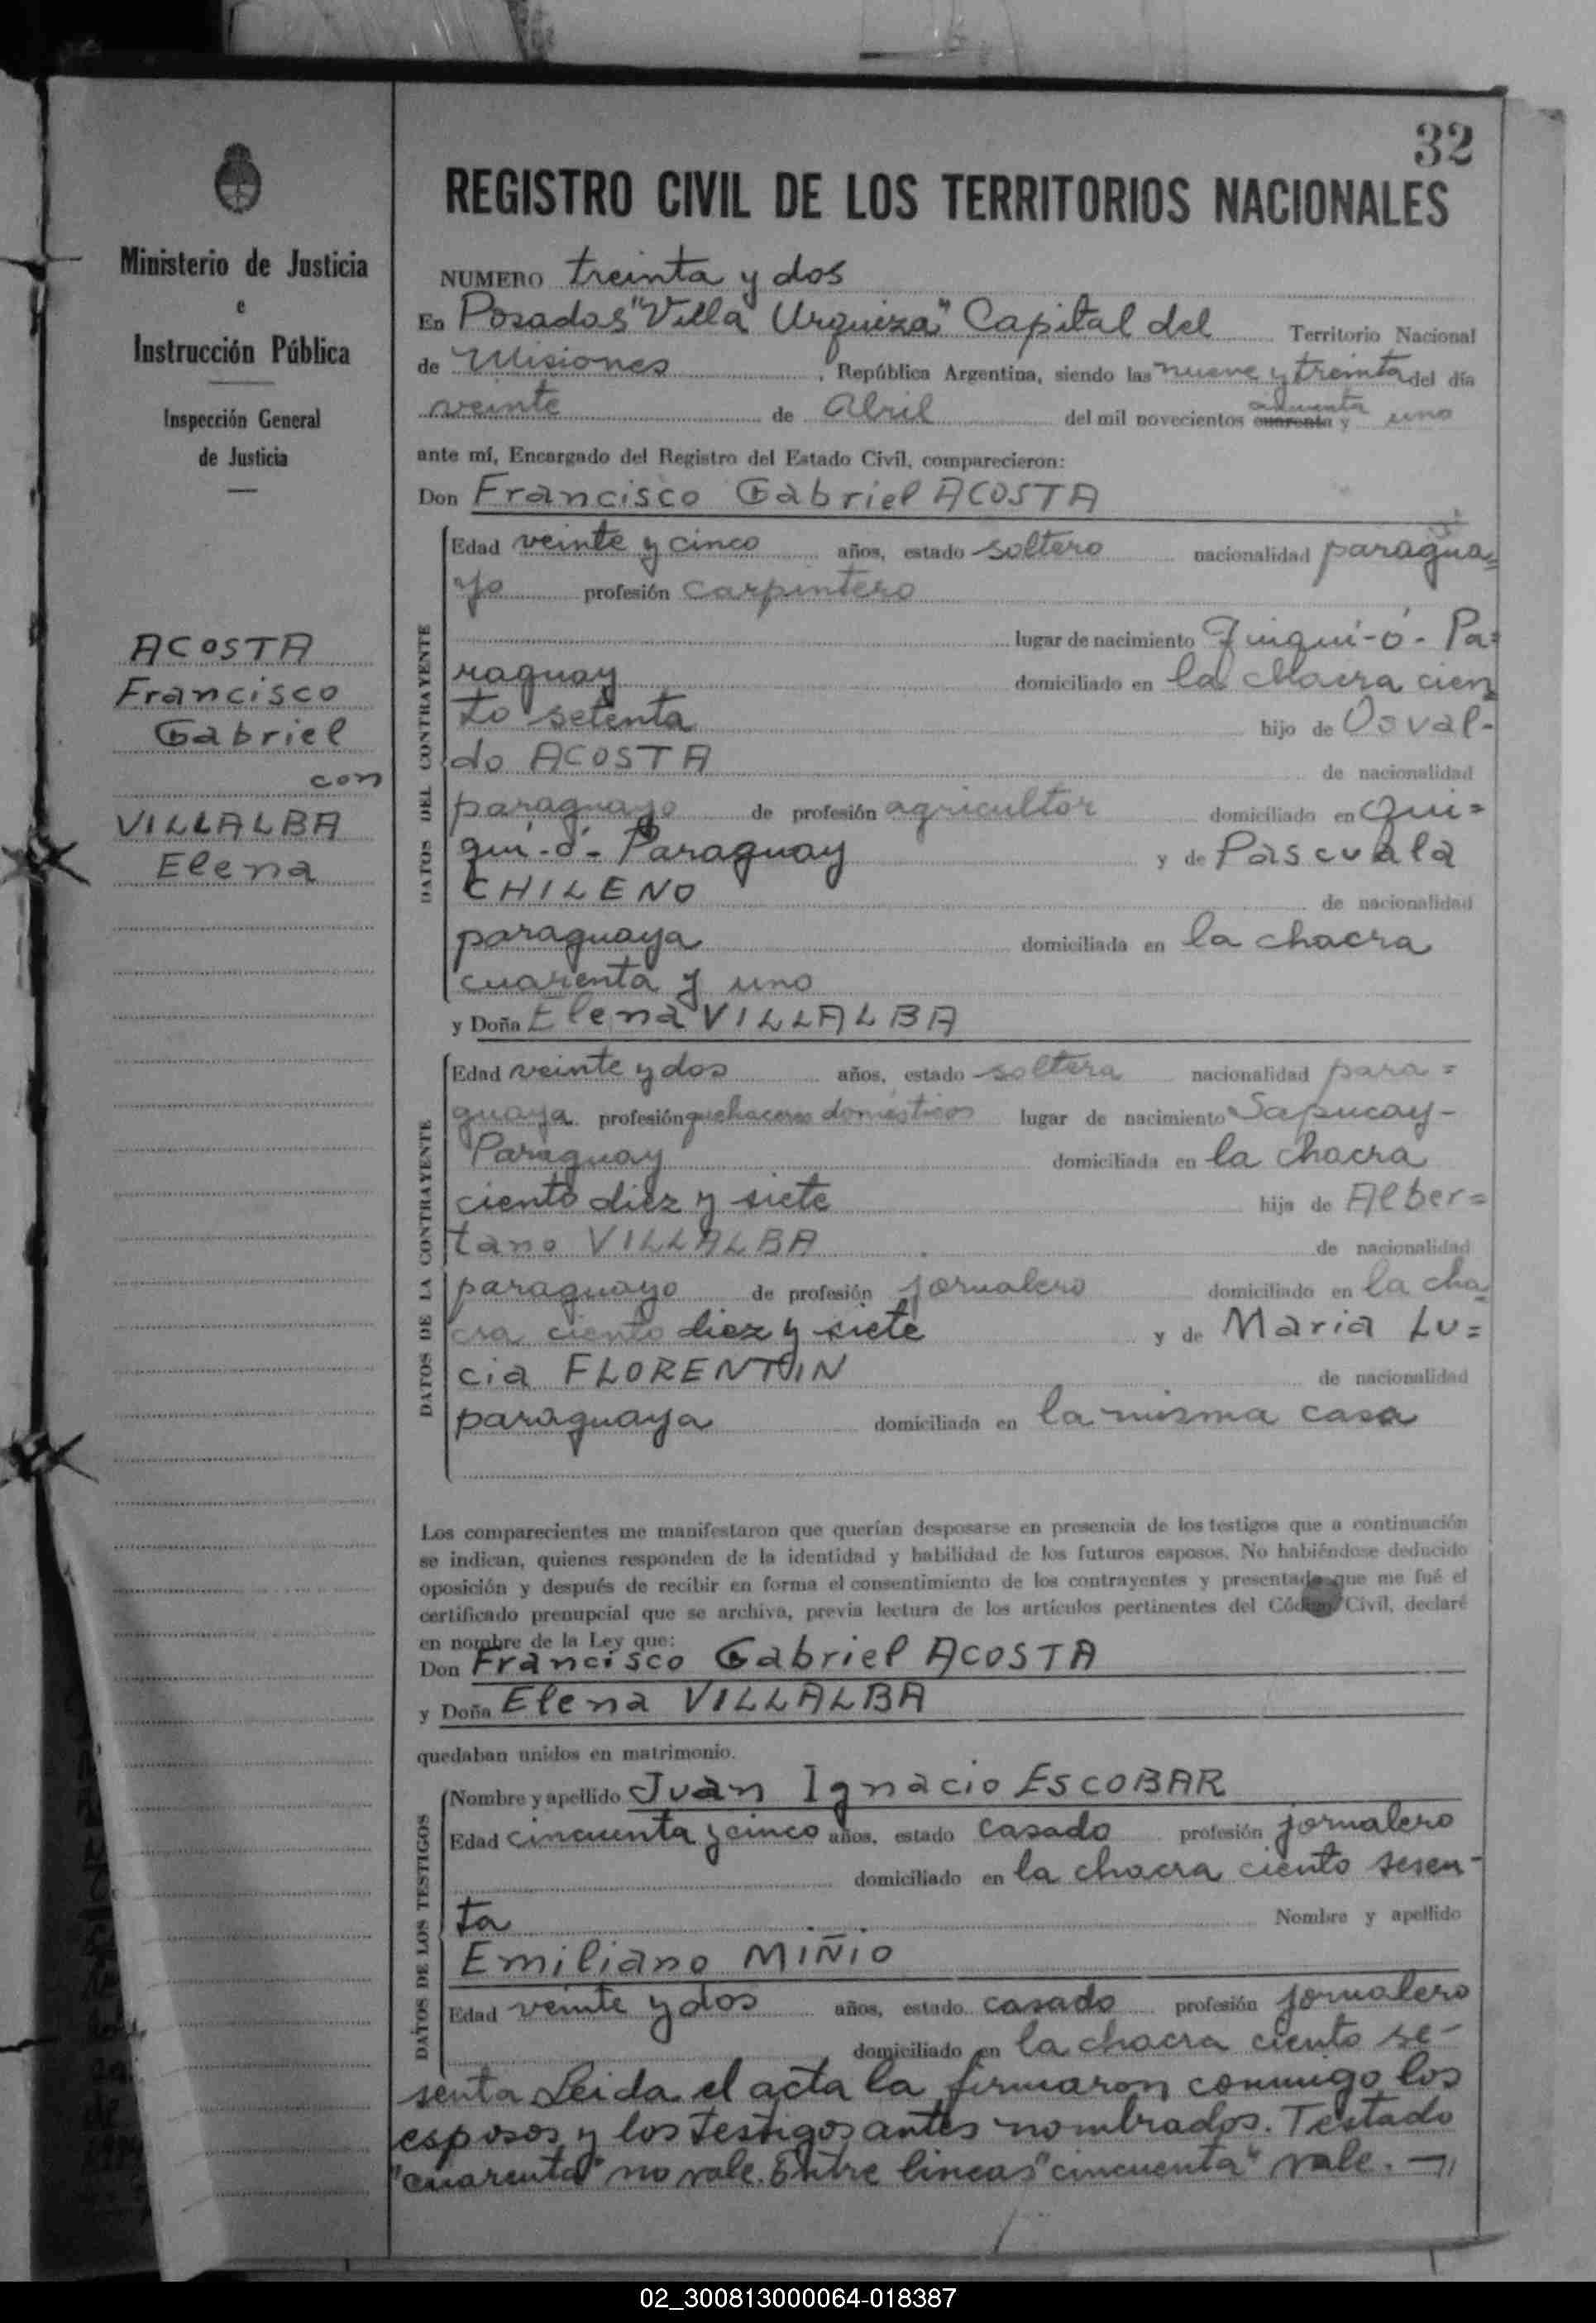 32
REGISTRO CIVIL DE LOS TERRITORIOS NACIONALES
Ministerio de Justicia
e
Instrucción Pública
Inspección General
de Justicia
ACOSTA
Francisco
Gabriel
con
VILLALBA
Elena
NUMERO treinta y dos
En Posadas "Villa Urquiza" Capital del Territorio Nacional
de Misiones, República Argentina, siendo las nueve y treinta del día
veinte de Abril del mil novecientos cuarenta y cincuenta uno
ante mí, Encargado del Registro del Estado Civil, comparecieron:
Don Francisco Gabriel ACOSTA
DATOS DEL CONTRAYENTE
Edad veinte y cinco años, estado soltero nacionalidad paragua=
yo profesión carpintero
lugar de nacimiento Quiquí-ó- Pa=
raguay domiciliado en la chacra cien
to setenta hijo de Osval-
do ACOSTA de nacionalidad
paraguayo de profesión agricultor domiciliado en Qui=
quí-ó- Paraguay y de Pascuala
CHILENO de nacionalidad
paraguaya domiciliada en la chacra
cuarenta y uno
y Doña Elena VILLALBA
DATOS DE LA CONTRAYENTE
Edad veinte y dos años, estado soltera nacionalidad para=
guaya profesión quehaceres domésticos lugar de nacimiento Sapucay-
Paraguay domiciliada en la chacra
ciento diez y siete hija de Alber=
tano VILLALBA de nacionalidad
paraguayo de profesión jornalero domiciliado en la cha
cra ciento diez y siete y de Maria Lu=
cia FLORENTIN de nacionalidad
paraguaya domiciliada en la misma casa
Los comparecientes me manifestaron que querían desposarse en presencia de los testigos que a continuación
se indican, quienes responden de la identidad y habilidad de los futuros esposos. No habiéndose deducido
oposición y después de recibir en forma el consentimiento de los contrayentes y presentado que me fué el
certificado prenupcial que se archiva, previa lectura de los artículos pertinentes del Código Civil, declaré
en nombre de la Ley que:
Don Francisco Gabriel ACOSTA
y Doña Elena VILLALBA
quedaban unidos en matrimonio.
DATOS DE LOS TESTIGOS
Nombre y apellido Juan Ignacio ESCOBAR
Edad cincuenta y cinco años, estado casado profesión jornalero
domiciliado en la chacra ciento sesen-
ta Nombre y apellido
Emiliano MIÑIO
Edad veinte y dos años, estado casado profesión jornalero
domiciliado en la chacra ciento se-
senta Leida el acta la firmaron conmigo los
esposos y los testigos antes nombrados. Testado
"cuarenta" no vale. Entre lineas "cincuenta" vale. -
02_300813000064-018387